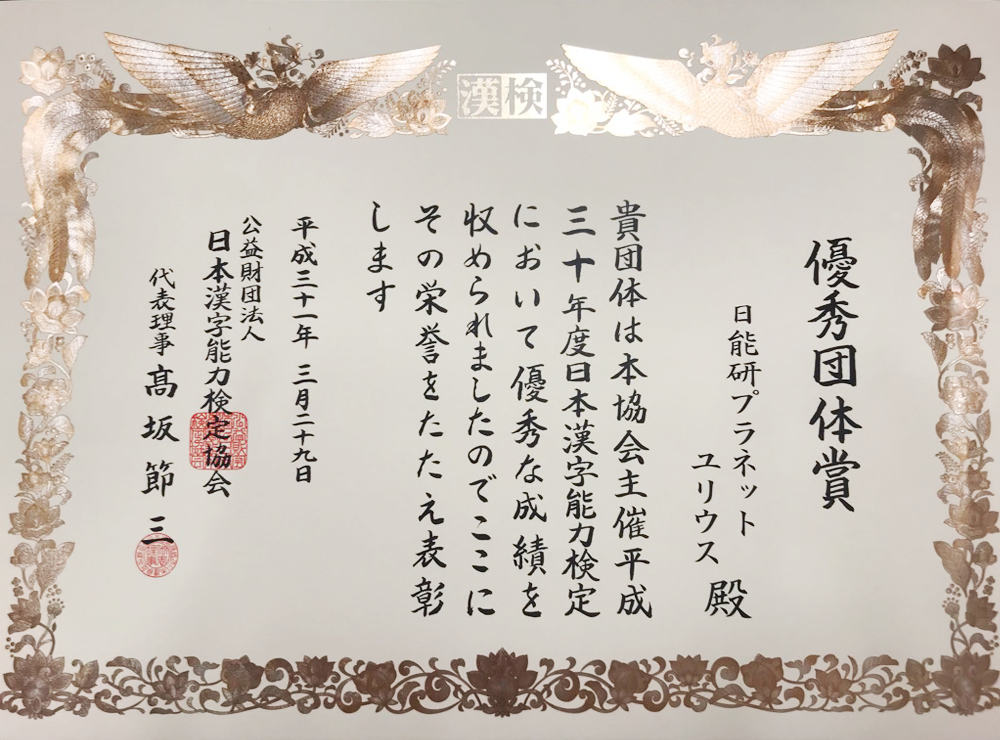 漢検
優秀団体賞
日能研プラネット
ユリウス 殿
貴団体は本協会主催平成
三十年度日本漢字能力検定
において優秀な成績を
収められましたのでここに
その栄誉をたたえ表彰
します
平成三十一年 三月二十九日
公益財団法人
日本漢字能力検定協会
代表理事 髙坂節三